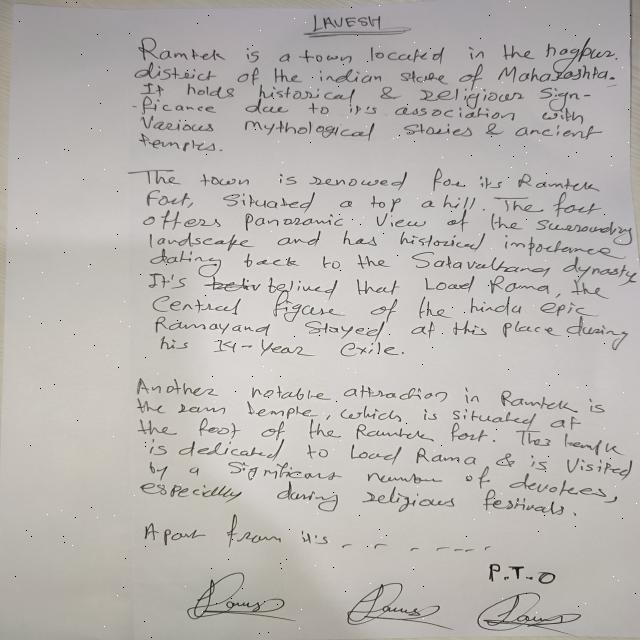 LAVESH
Ramtek is a town located in the nagpur
district of the indian state of Maharashtra.
It holds historical & religious Sign-
-ficance due to it's association with
Various mythological stories & ancient
temples.
The town is renowed for its Ramtek
Fort, Situated a top a hill. The fort
offers panoramic View of the surrounding
landscape and has historical importance
dating back to the Satavahana dynasty
It's belived that Load Rama, the
Central figure of the hindu epic
Ramayana Stayed at this place during
his 14-Year exile.
Another notable attraction in Ramtek is
the ram temple, which is situated at
the foot of the Ramtek fort. This temple
is dedicated to Load Rama & is Visited
by a Significant number of devotees,
especially during religious festivals.
Apart from it's - - - - - - -
P.T.O